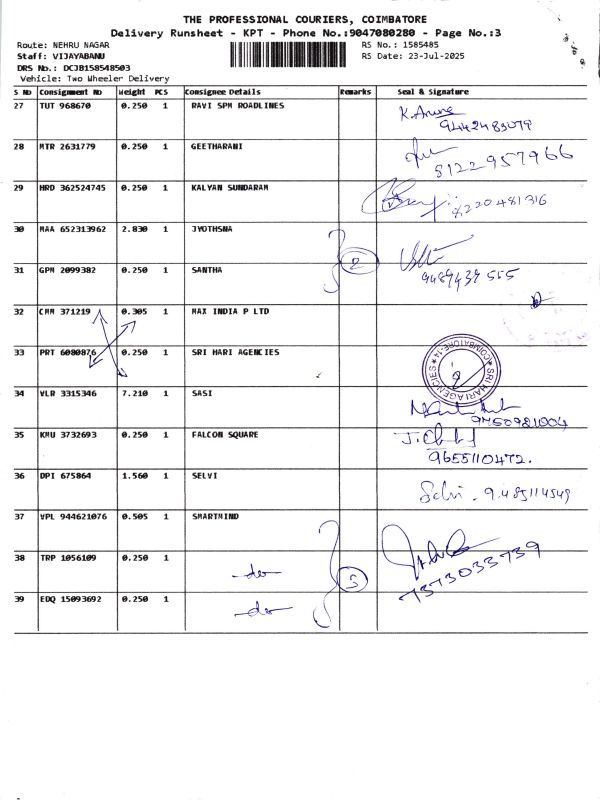 THE PROFESSIONAL COURIERS, COIMBATORE
Delivery Runsheet - KPT - Phone No.:9047080280 - Page No.:3
Route: NEHRU NAGAR RS No.: 1585485
Staff: VIJAYABANU RS Date: 23-Jul-2025
DRS No.: DCJB158548503
Vehicle: Two Wheeler Delivery
S NO Consignment NO Weight PCS Consignee Details Remarks Seal & Signature
27 TUT 968670 0.250 1 RAVI SPM ROADLINES K. Arun
9442483079
28 MTR 2631779 0.250 1 GEETHARANI
8122957966
29 HRD 362524745 0.250 1 KALYAN SUNDARAM
8220481316
30 MAA 652313962 2.830 1 JYOTHSNA 2
31 GPM 2099382 0.250 1 SANTHA 9489439555
32 CMM 371219 0.305 1 MAX INDIA P LTD
33 PRT 6080876 0.250 1 SRI HARI AGENCIES
SRI HARI AGENCIES COIMBATORE-14
34 VLR 3315346 7.210 1 SASI
9750921004
35 KMU 3732693 0.250 1 FALCON SQUARE
9655110472.
36 DPI 675864 1.560 1 SELVI Selvi . 9485114549
37 VPL 944621076 0.505 1 SMARTMIND
38 TRP 1056109 0.250 1 -do- 3
7373033739
39 EDQ 15093692 0.250 1 -do-